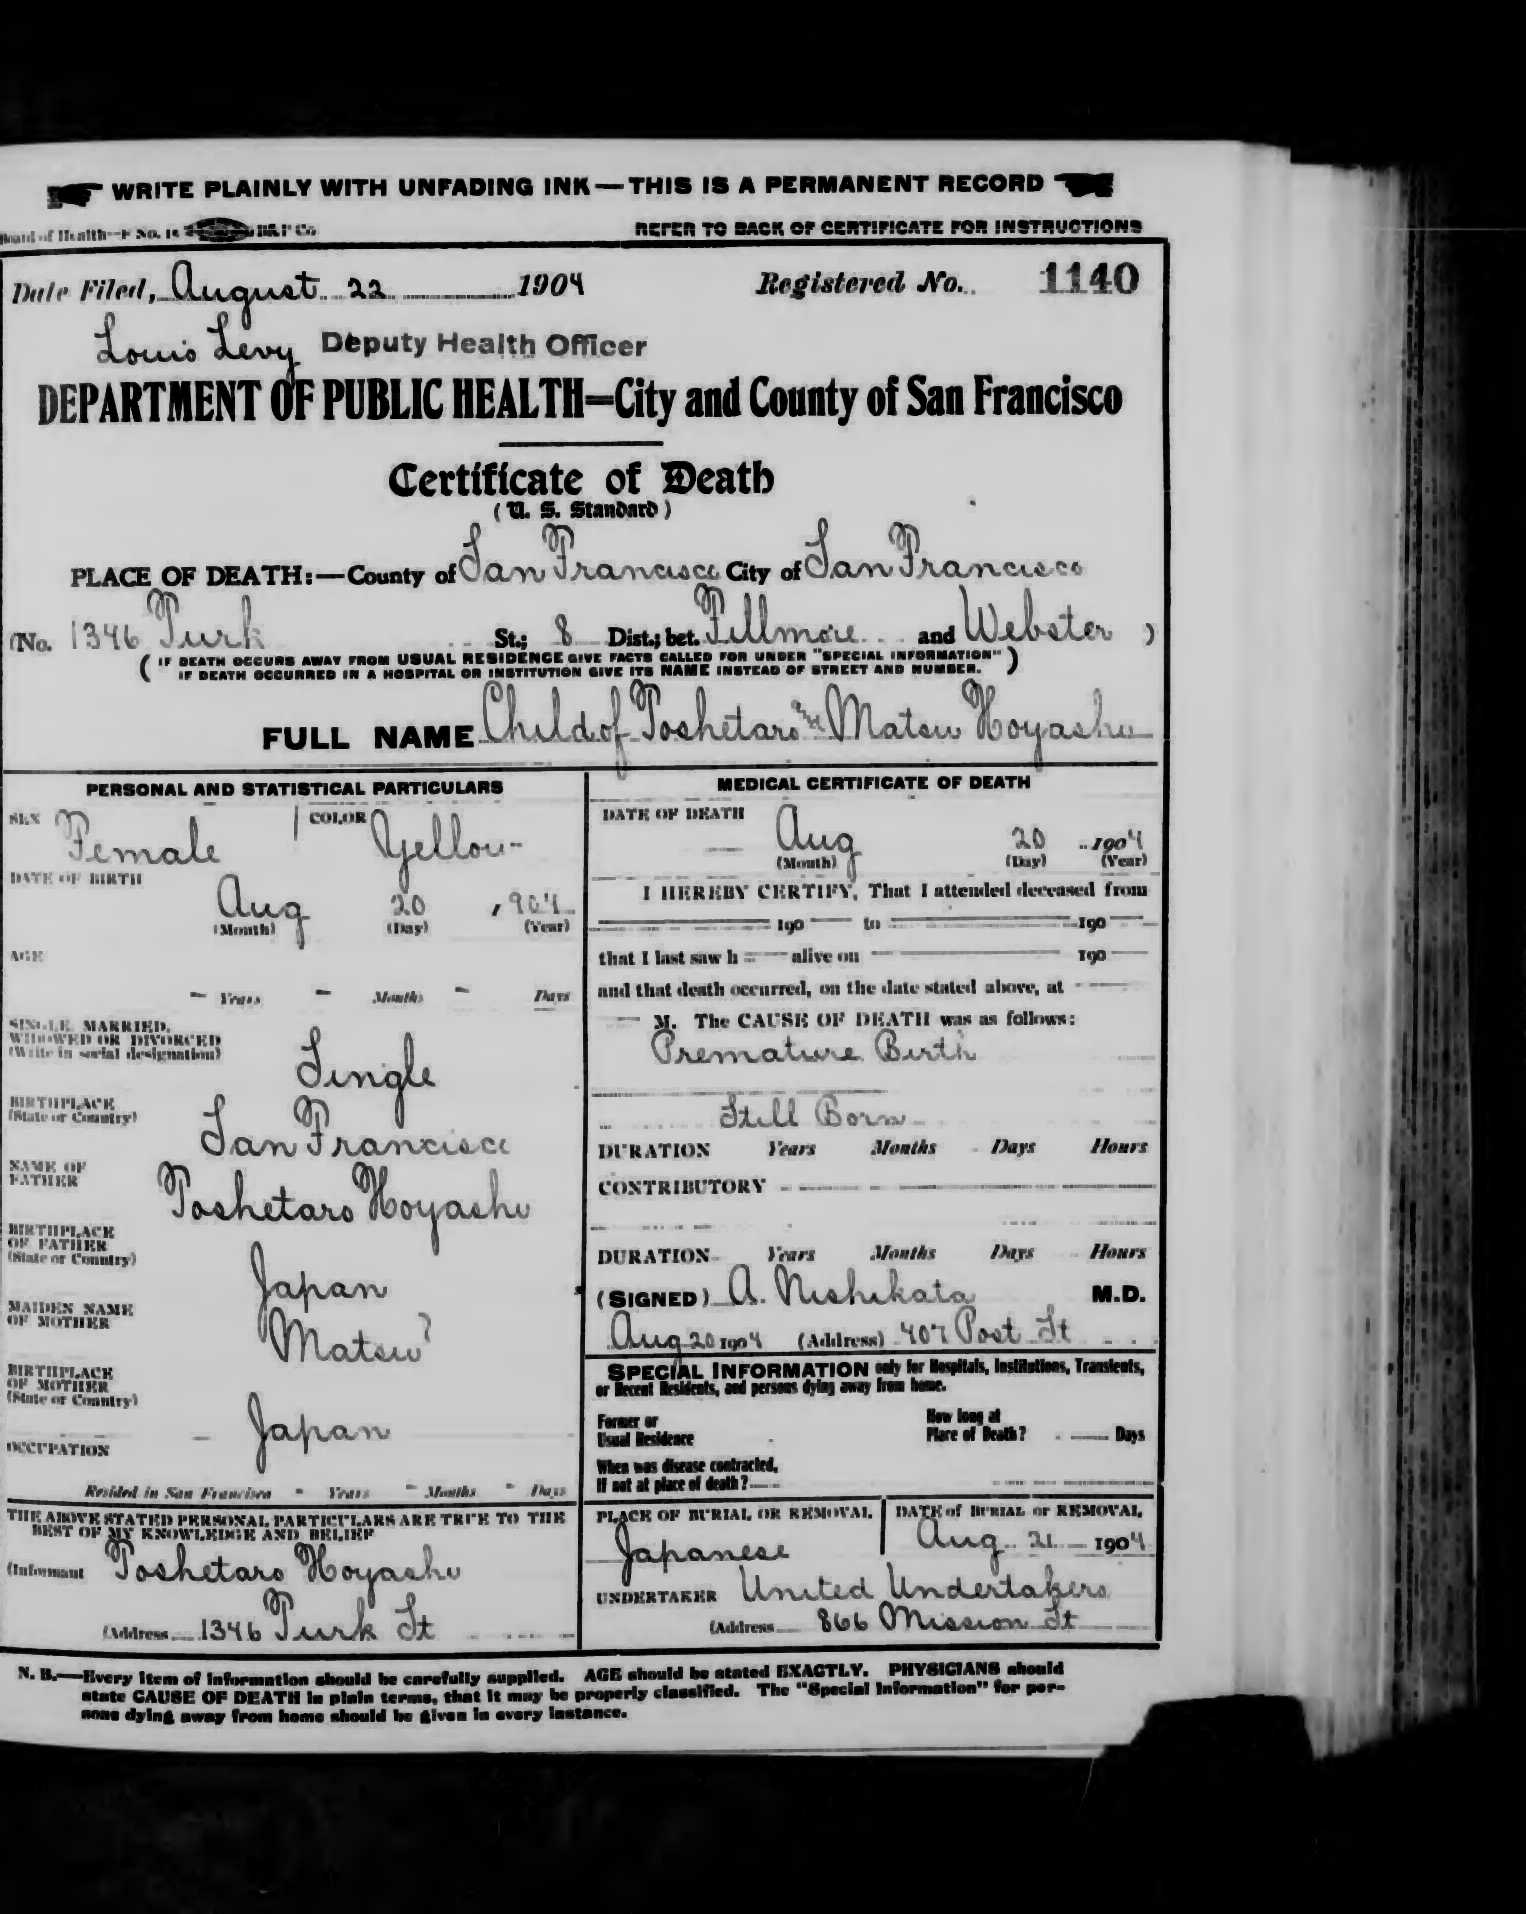 WRITE PLAINLY WITH UNFADING INK—THIS IS A PERMANENT RECORD
Board of Health—F No. 15 B&P Co
REFER TO BACK OF CERTIFICATE FOR INSTRUCTIONS
Date Filed, August 22 1904 Registered No. 1140
Louis Levy Deputy Health Officer
DEPARTMENT OF PUBLIC HEALTH=City and County of San Francisco
Certificate of Death
(U. S. Standard)
PLACE OF DEATH:—County of San Francisco City of San Francisco
(No. 1346 Turk St.; 8 Dist.; bet. Fillmore and Webster )
( IF DEATH OCCURS AWAY FROM USUAL RESIDENCE GIVE FACTS CALLED FOR UNDER "SPECIAL INFORMATION"
IF DEATH OCCURRED IN A HOSPITAL OR INSTITUTION GIVE ITS NAME INSTEAD OF STREET AND NUMBER. )
FULL NAME Child of Toshetaro and Matsu Hoyashu
PERSONAL AND STATISTICAL PARTICULARS
SEX Female COLOR Yellow
DATE OF BIRTH
Aug 20 , 904
(Month) (Day) (Year)
AGE
– Years – Months – Days
SINGLE, MARRIED,
WIDOWED OR DIVORCED
(Write in social designation)
Single
BIRTHPLACE
(State or Country)
San Francisco
NAME OF
FATHER
Toshetaro Hoyashu
BIRTHPLACE
OF FATHER
(State or Country)
Japan
MAIDEN NAME
OF MOTHER
Matsu ?
BIRTHPLACE
OF MOTHER
(State or Country)
Japan
OCCUPATION
Resided in San Francisco - Years - Months - Days
THE ABOVE STATED PERSONAL PARTICULARS ARE TRUE TO THE
BEST OF MY KNOWLEDGE AND BELIEF
(Informant Toshetaro Hoyashu
(Address 1346 Turk St
MEDICAL CERTIFICATE OF DEATH
DATE OF DEATH
Aug 20 1904
(Month) (Day) (Year)
I HEREBY CERTIFY, That I attended deceased from
190 to 190
that I last saw h alive on 190
and that death occurred, on the date stated above, at
M. The CAUSE OF DEATH was as follows:
Premature Birth
Still Born
DURATION Years Months Days Hours
CONTRIBUTORY
DURATION Years Months Days Hours
(SIGNED) A. Nishikata M.D.
Aug 20 1904 (Address) 407 Post St
SPECIAL INFORMATION only for Hospitals, Institutions, Transients,
or Recent Residents, and persons dying away from home.
Former or
Usual Residence
How long at
Place of Death? Days
When was disease contracted,
If not at place of death?
PLACE OF BURIAL OR REMOVAL
Japanese
DATE of BURIAL or REMOVAL
Aug 21 1904
UNDERTAKER United Undertakers
(Address 866 Mission St
N. B.—Every item of information should be carefully supplied. AGE should be stated EXACTLY. PHYSICIANS should
state CAUSE OF DEATH in plain terms, that it may be properly classified. The "Special Information" for per-
sons dying away from home should be given in every instance.